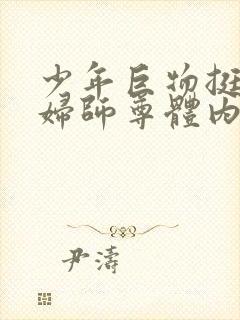 少年巨物挺
婦師尊體內
尹濤